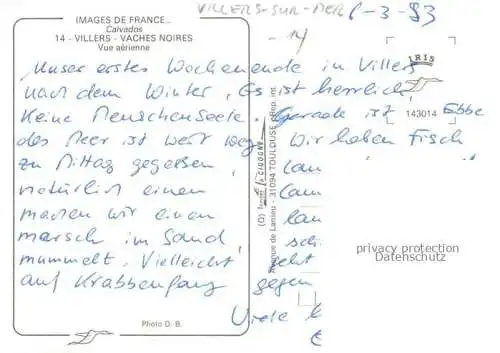 VILLERS-SUR-MER 6-3-83
IMAGES DE FRANCE...
Calvados
14 - VILLERS - VACHES NOIRES
Vue aérienne
LR15
143014
Unser erstes Wochenende in Villers
nach dem Winter. Es ist herrlich,
Keine Menschenseele. Gerade ist Ebbe
das Meer ist weit weg. Wir haben Fisch
zu Mittag gegessen,
natürlich einen
machen wir einen
marsch im Sand,
mummelt. Vielleicht
auf Krabbenfang gegen
Viele
Photo D. B.
LA CIGOGNE
Avenue de Larrieu - 31094 TOULOUSE
Rep. int.
privacy protection
Datenschutz